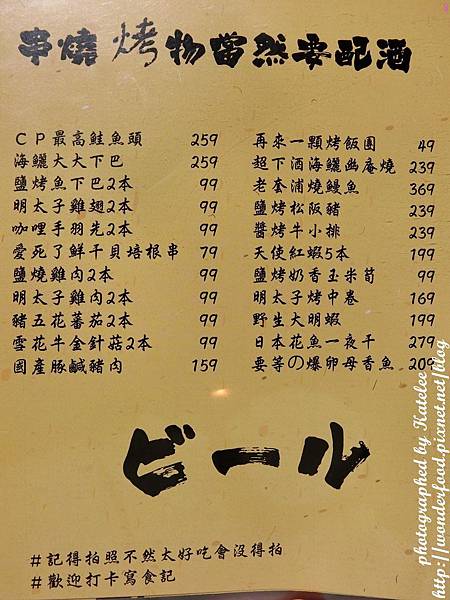 串燒烤物當然要配酒
CP最高鮭魚頭 259
海鱺大大下巴 259
鹽烤魚下巴2本 99
明太子雞翅2本 99
咖哩手羽先2本 99
愛死了鮮干貝培根串 79
鹽燒雞肉2本 99
明太子雞肉2本 99
豬五花蕃茄2本 99
雪花牛金針菇2本 99
國產豚鹹豬肉 159
再來一顆烤飯團 49
超下酒海鱺幽庵燒 239
老套浦燒鰻魚 369
鹽烤松阪豬 239
醬烤牛小排 239
天使紅蝦5本 199
鹽烤奶香玉米筍 99
明太子烤中卷 169
野生大明蝦 199
日本花魚一夜干 279
要等の爆卵母香魚 209
ビール
#記得拍照不然太好吃會沒得拍
#歡迎打卡寫食記
photographed by Katelee
http://wonderfood.pixnet.net/blog